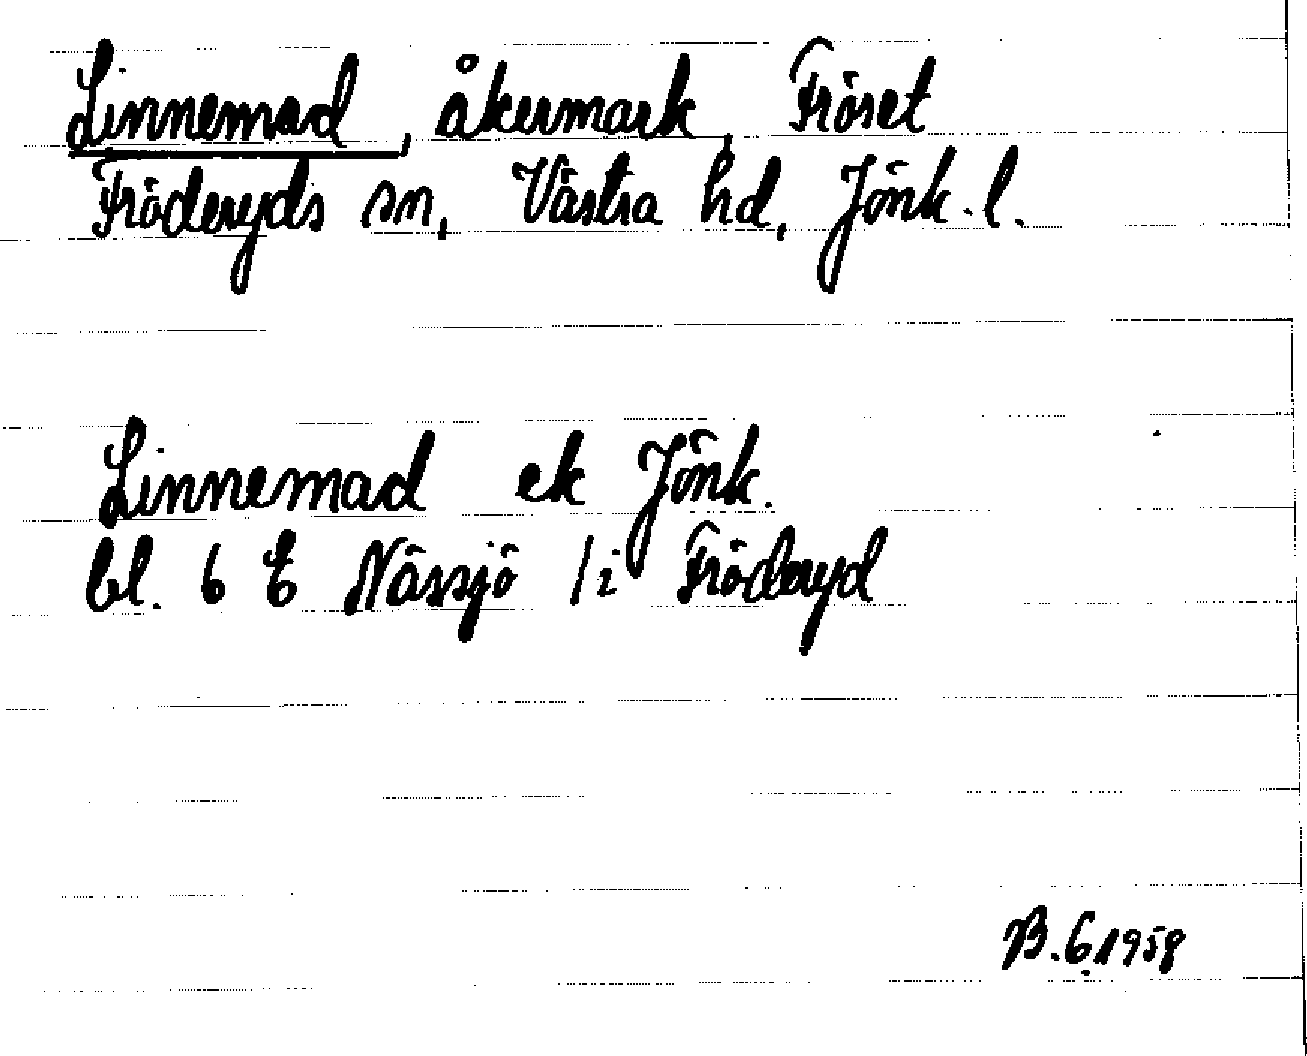 Linnemad, åkermark, Fröset
Fröderyds sn, Västra hd, Jönk. l.
Linnemad ek Jönk.
bl. 6 E Nässjö / i Fröderyd
B.G.1958